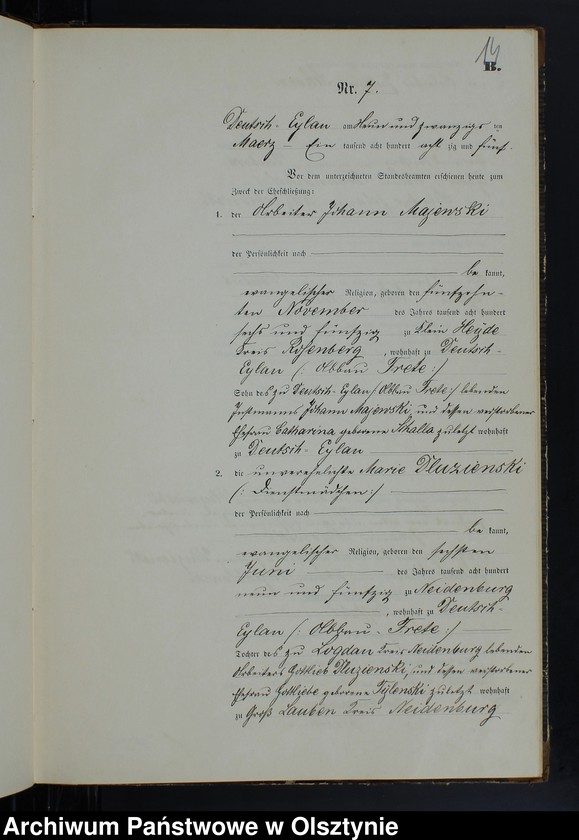 14
B.
Nr. 7.
Deutsch-Eylau am Neun und zwanzigsten
Maerz — Ein tausend acht hundert acht zig und fünf.
Vor dem unterzeichneten Standesbeamten erschienen heute zum
Zweck der Eheschließung:
1. der Arbeiter Johann Majewski
der Persönlichkeit nach
be kannt,
evangelischer Religion, geboren den fünfzehn-
ten November des Jahres tausend acht hundert
sechs und fünfzig zu Klein Heyde
Kreis Rosenberg, wohnhaft zu Deutsch-
Eylau (: Abbau Frete :)
Sohn des zu Deutsch-Eylau (Abbau Frete :) lebenden
Instmanns Johann Majewski, und dessen verstorbener
Ehefrau Catharina geborene Skalla zuletzt wohnhaft
zu Deutsch-Eylau
2. die unverehelichte Marie Dluzienski
(: Dienstmädchen :)
der Persönlichkeit nach
be kannt,
evangelischer Religion, geboren den sechsten
Juni des Jahres tausend acht hundert
neun und fünfzig zu Neidenburg
, wohnhaft zu Deutsch-
Eylau (: Abbau-Frete :)
Tochter des zu Logdau Kreis Neidenburg lebenden
Arbeiters Gottlieb Dluzienski, und dessen verstorbener
Ehefrau Gottliebe geborene zuletzt wohnhaft
zu Groß Lauben Kreis Neidenburg
Archiwum Państwowe w Olsztynie